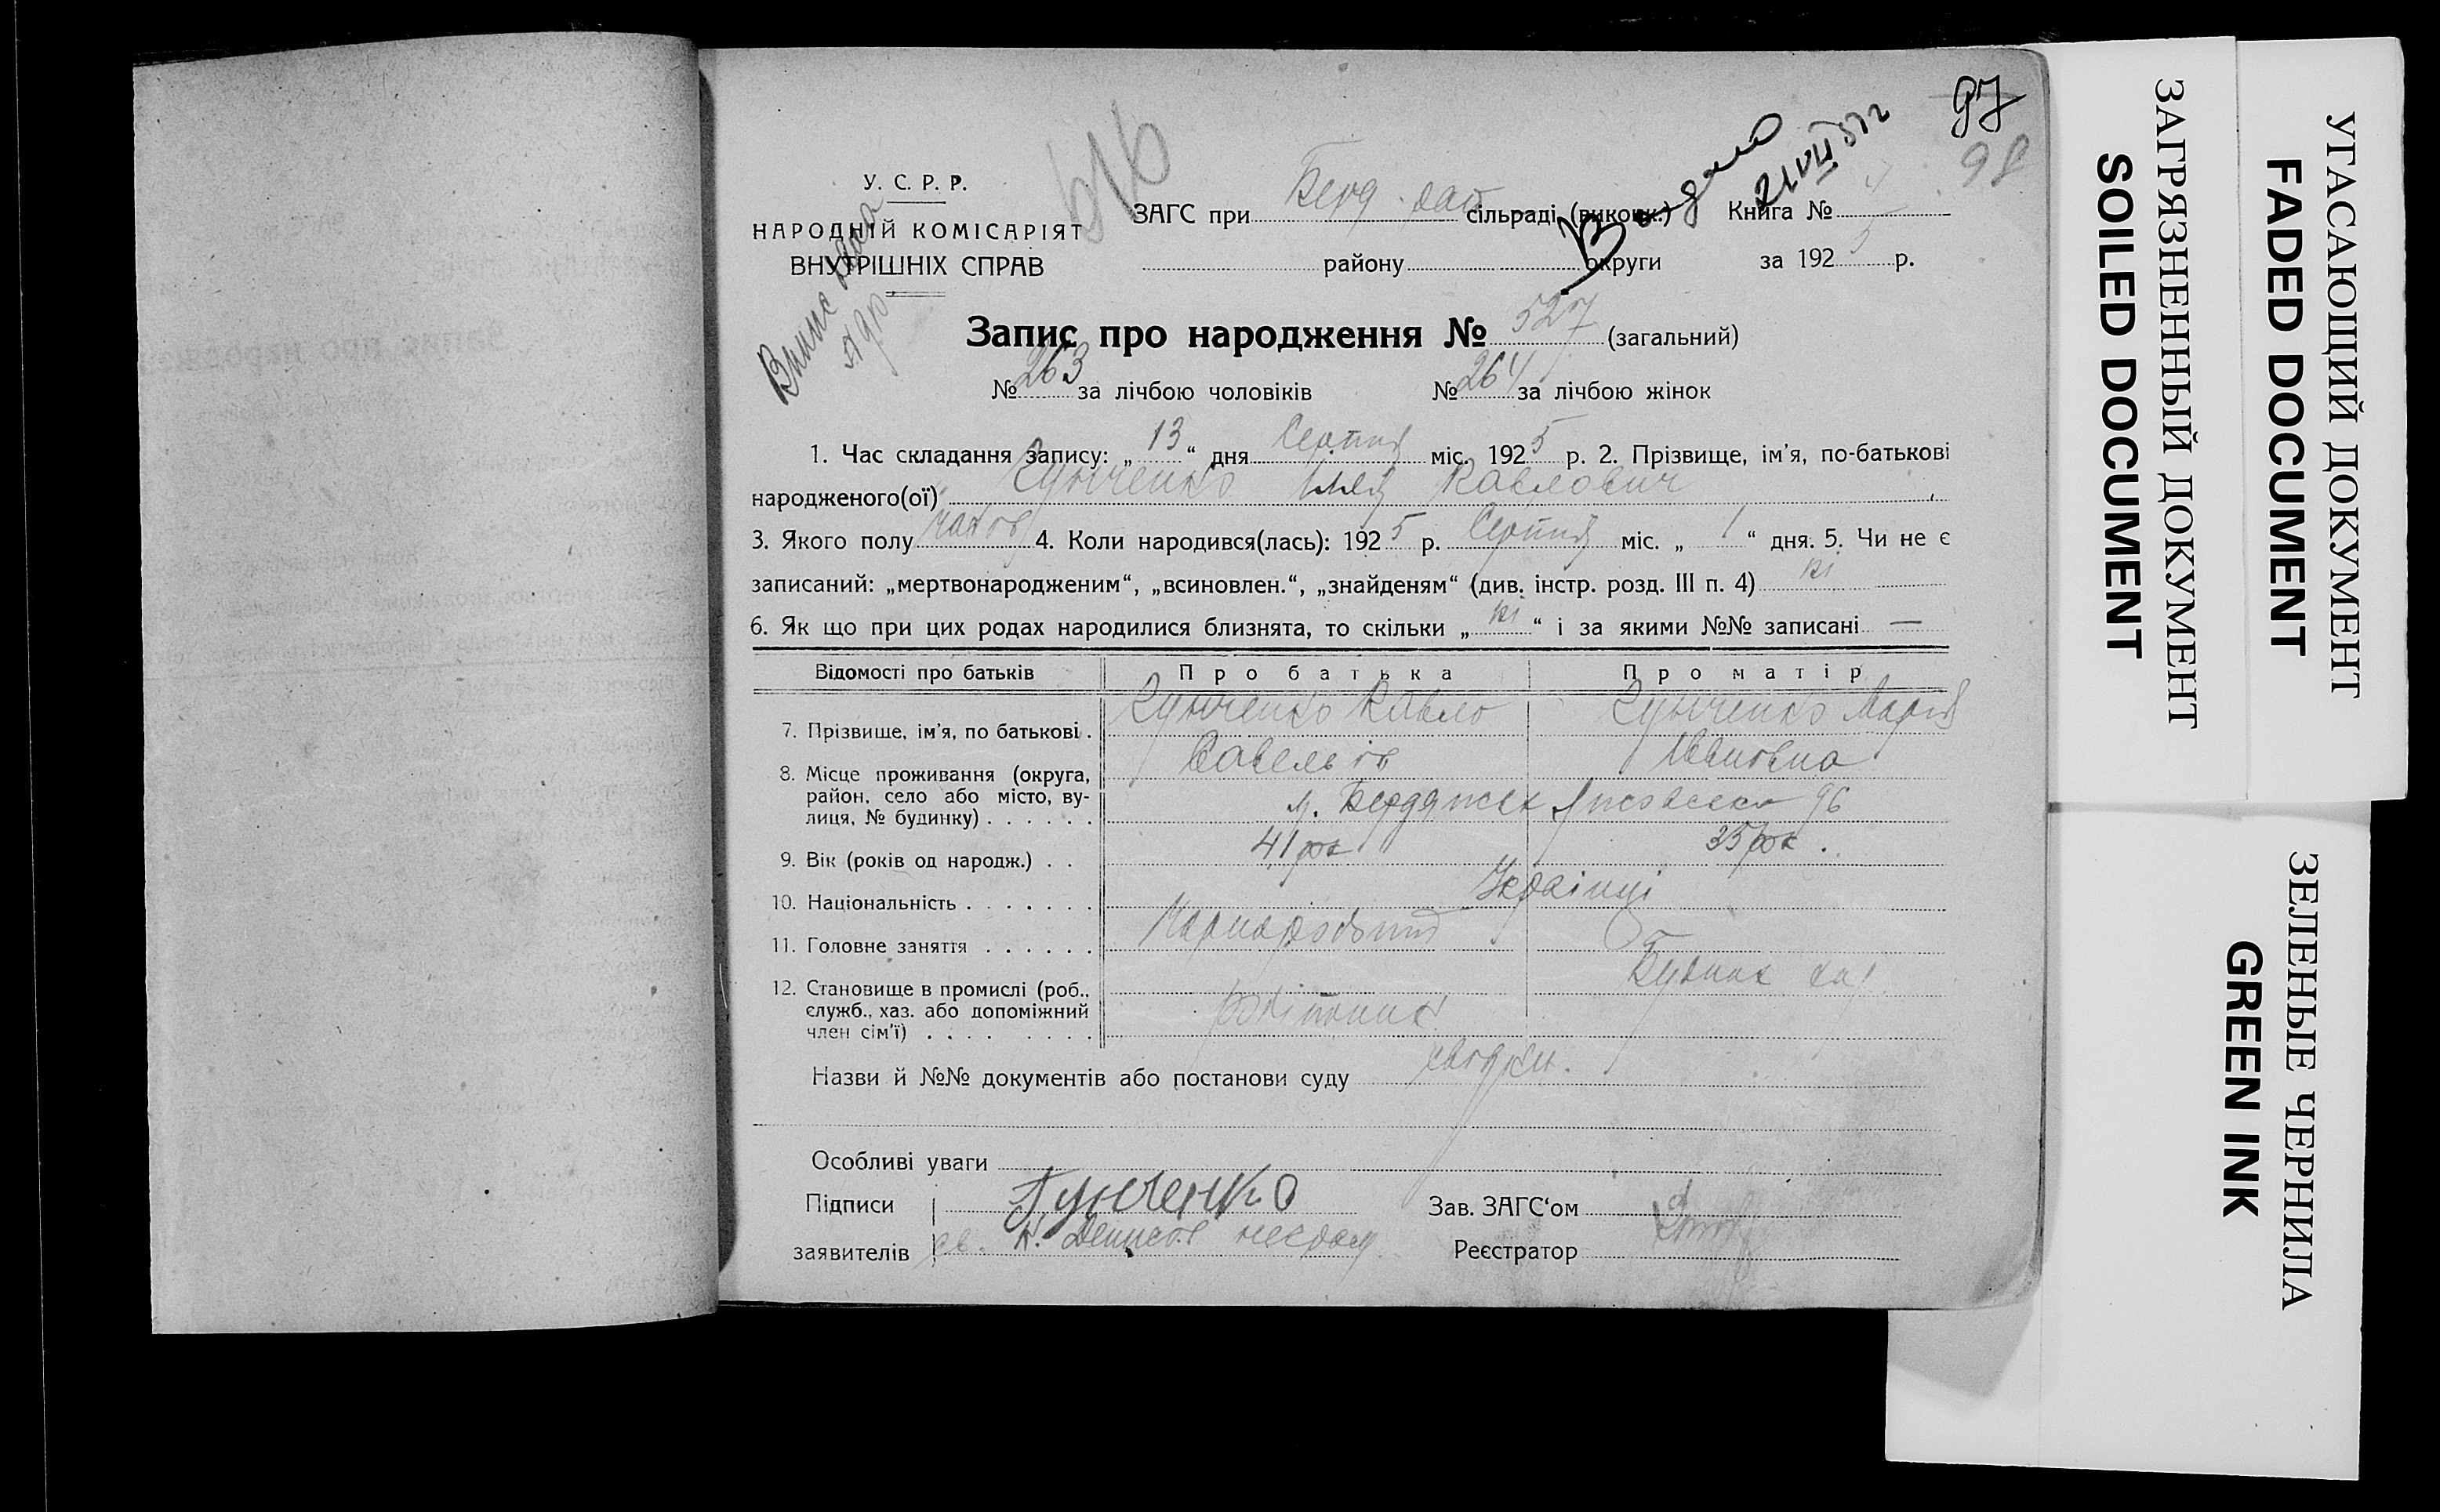 97
98
Видано
21 VII 51 г
У. С. Р. Р.
НАРОДНІЙ КОМІСАРІЯТ
ВНУТРІШНІХ СПРАВ
ЗАГС при Берд. рай сільраді (викон.) Книга №
району округи за 1925 р.
Запис про народження № 527 (загальний)
№ 263 за лічбою чоловіків № 264 за лічбою жінок
1. Час складання запису: „13“ дня Серпня міс. 1925 р. 2. Прізвище, ім'я, по-батькові
народженого(ої) Гунченко Илея Павлович
3. Якого полу 4. Коли народився(лась): 1925 р. Серпня міс. „1“ дня. 5. Чи не є
записаний: „мертвонародженим“, „всиновлен.“, „знайденям“ (див. інстр. розд. III п. 4) ні
6. Як що при цих родах народилися близнята, то скільки „ні“ і за якими №№ записані —
Відомості про батьків Про батька Про матір
7. Прізвище, ім'я, по батькові . Гунченко Павло Гунченко Марія
Савельів Ивановна
8. Місце проживання (округа,
район, село або місто, ву-
лиця, № будинку) . . . . . . м. Бердянськ 96
9. Вік (років од народж.) . . 41 рок 35 рок.
10. Національність . . . . . . . Українці
11. Головне заняття . . . . . . Чорноробочий
12. Становище в промислі (роб.,
служб., хаз. або допоміжний
член сім'ї) . . . . . . . . робітник
Назви й №№ документів або постанови суду
Особливі уваги
Підписи Гунченко Зав. ЗАГС'ом
заявителів Реєстратор
ЗАГРЯЗНЕННЫЙ ДОКУМЕНТ
SOILED DOCUMENT
УГАСАЮЩИЙ ДОКУМЕНТ
FADED DOCUMENT
ЗЕЛЕНЫЕ ЧЕРНИЛА
GREEN INK